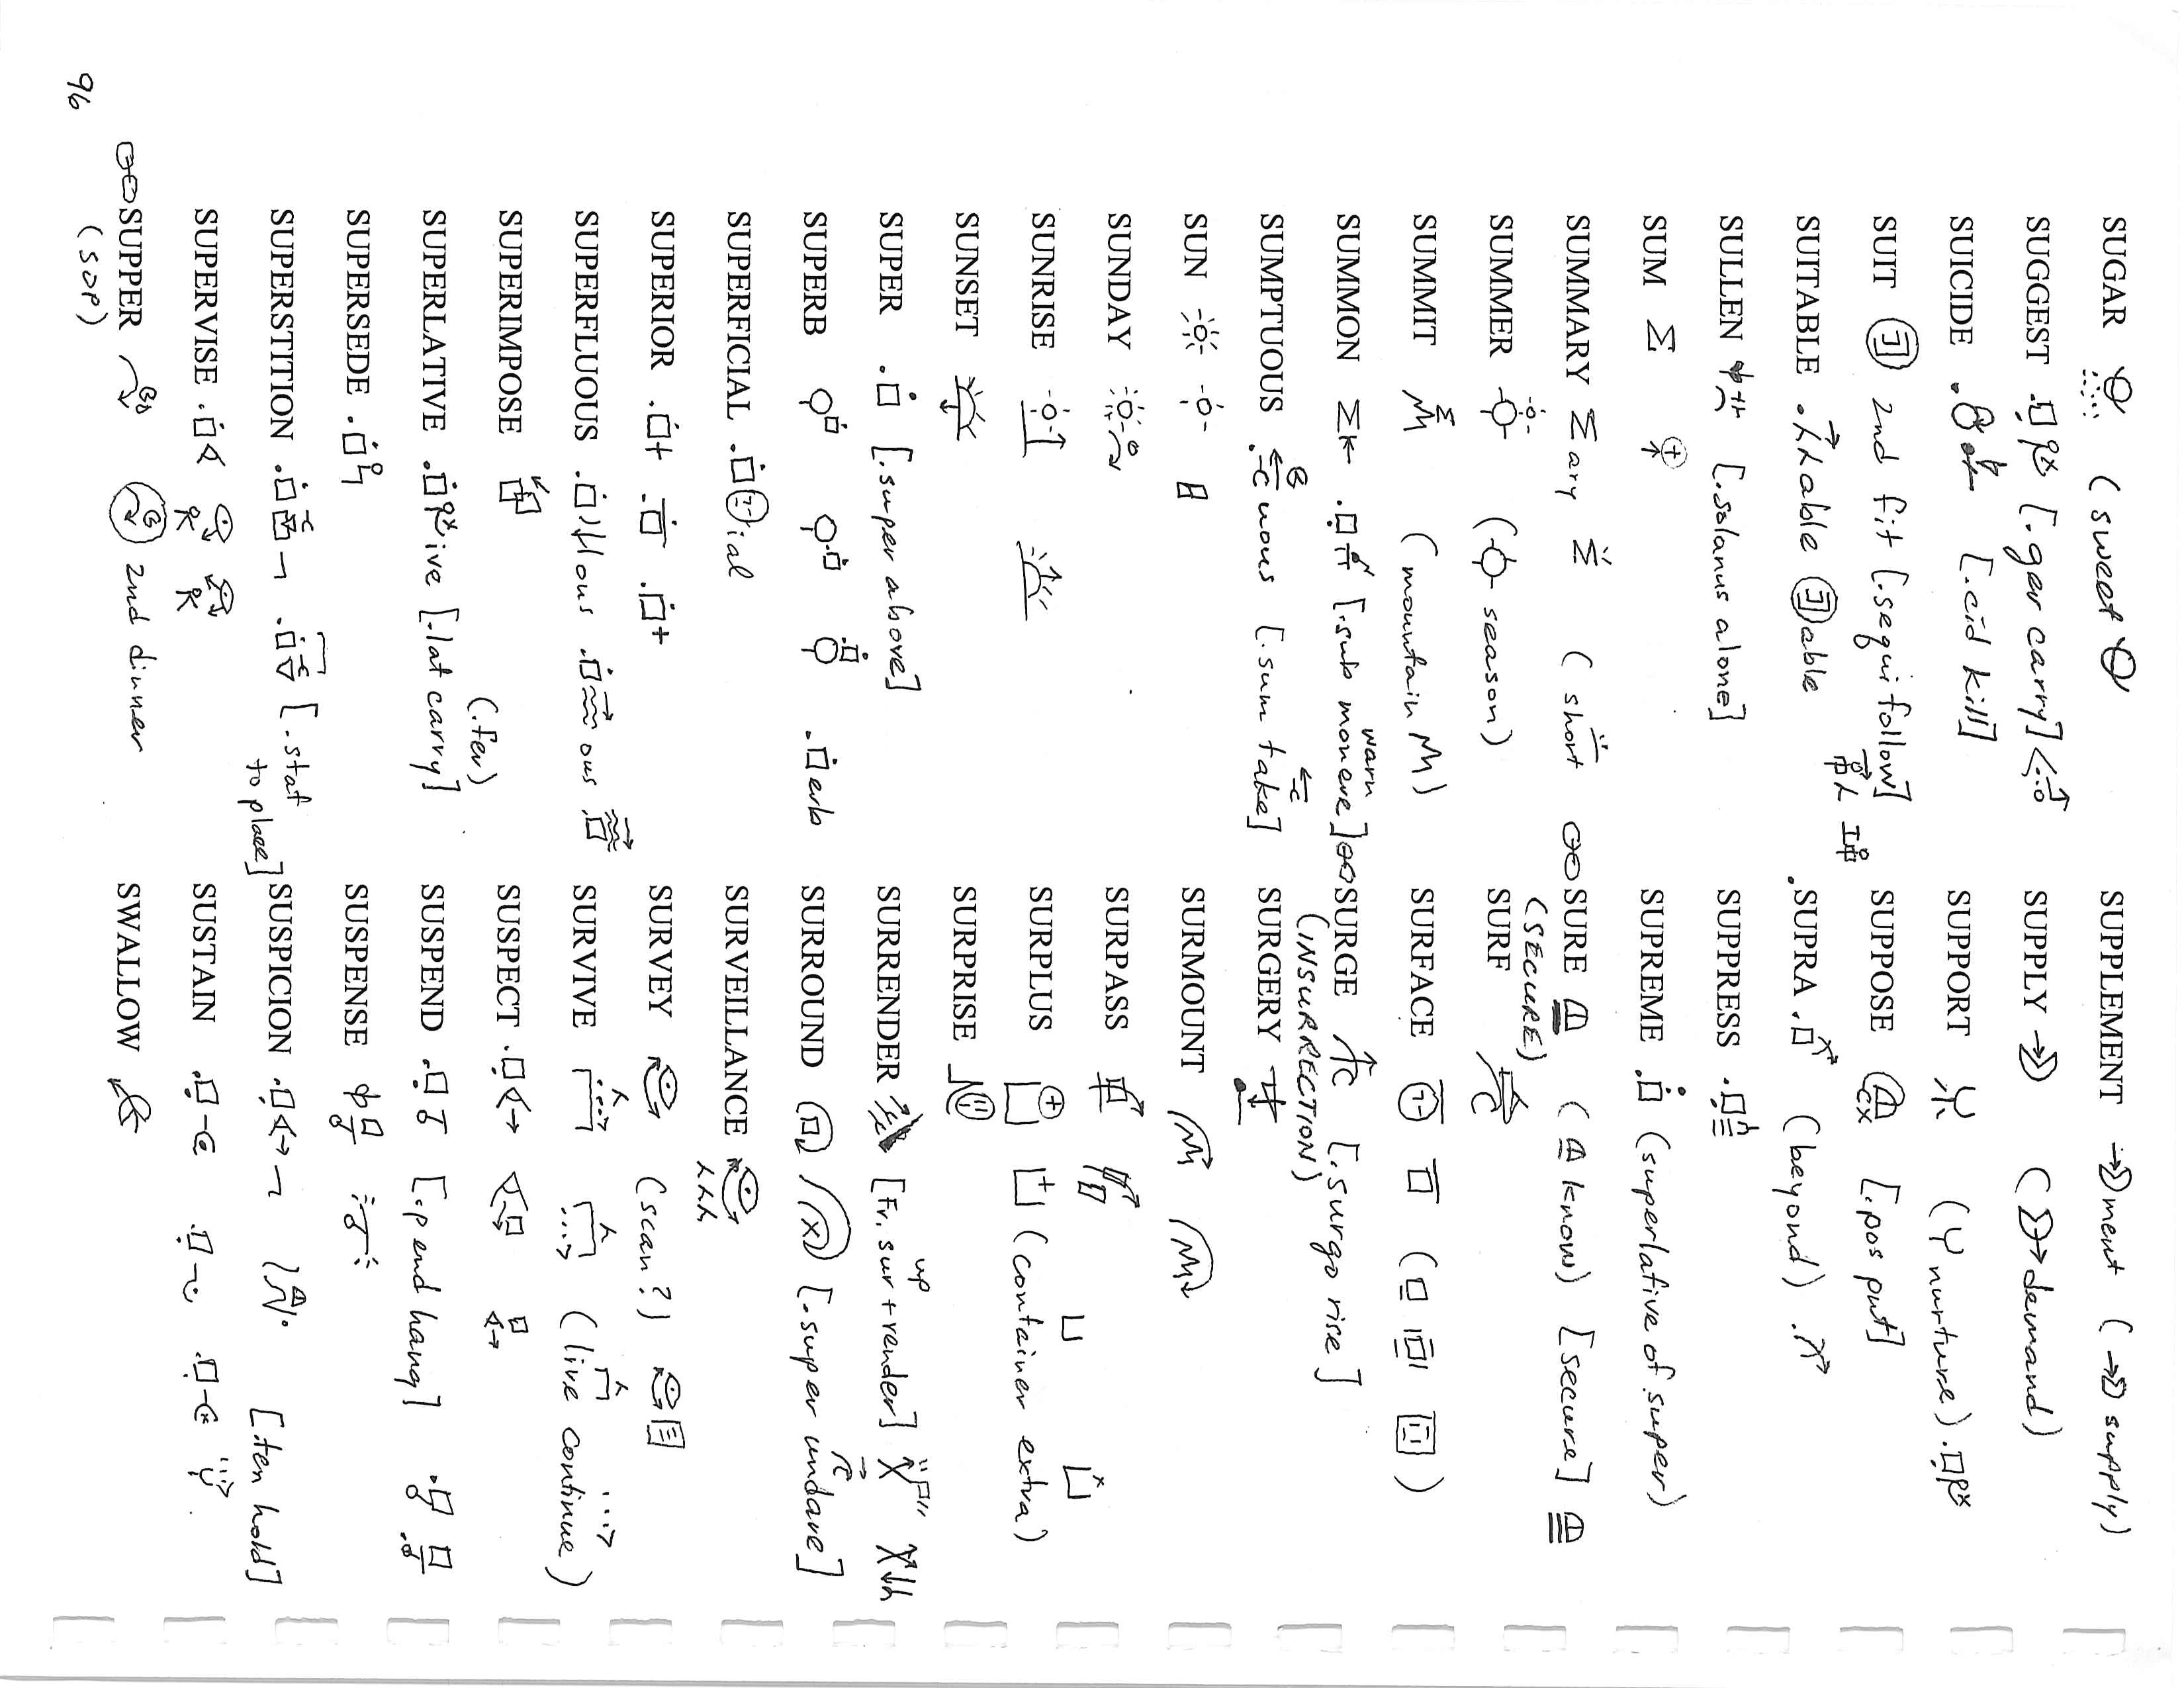 SUGAR (sweet)
SUGGEST [.ger carry]
SUICIDE [.cid kill]
SUIT 2nd fit [.sequi follow]
SUITABLE able able
SULLEN [.solanus alone]
SUM Σ
SUMMARY Σ ary (short)
SUMMER (season)
SUMMIT (mountain M)
SUMMON [.sub monere] warn
SUMPTUOUS uous [.sum take]
SUN
SUNDAY
SUNRISE
SUNSET
SUPER [.super above]
SUPERB .erb
SUPERFICIAL ial
SUPERIOR
SUPERFLUOUS ous ous
SUPERIMPOSE
SUPERLATIVE ive [.lat carry] (.fer)
SUPERSEDE
SUPERSTITION [.stat to place]
SUPERVISE
SUPPER 2nd dinner
(SOP)
SUPPLEMENT ment (supply)
SUPPLY (demand)
SUPPORT (nurture)
SUPPOSE [.pos put]
.SUPRA (beyond)
SUPPRESS
SUPREME (superlative of super)
SURE (know) [secure]
(SECURE)
SURF
SURFACE
SURGE [.surgo rise]
(INSURRECTION)
SURGERY
SURMOUNT
SURPASS
SURPLUS (container extra)
SURPRISE
SURRENDER [Fr. sur + render] up
SURROUND [.super undare]
SURVEILLANCE
SURVEY (scan?)
SURVIVE (live continue)
SUSPECT
SUSPEND [.pend hang]
SUSPENSE
SUSPICION
SUSTAIN [.ten hold]
SWALLOW
96